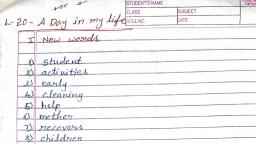 STUDENT'S NAME
CLASS SUBJECT
ROLL NO. DATE
L-20- A Day in my life
I New words
1) student
2) activities
3) early
4) cleaning
5) help
6) mother
7) recovers
8) children